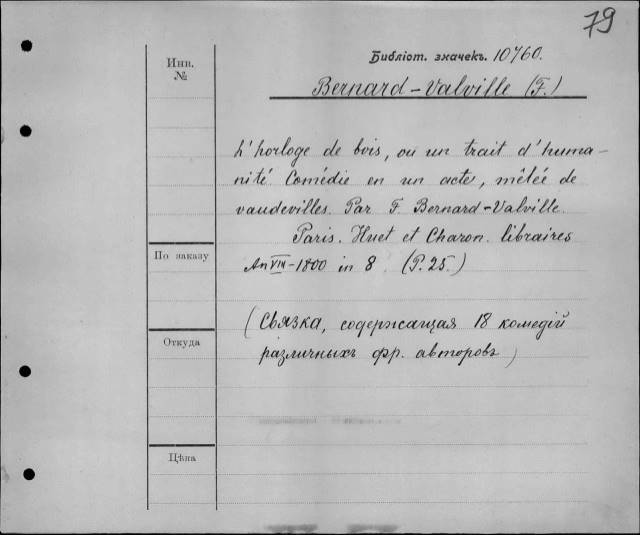 79
Библіот. значекъ. 10760.
Инв.
№
Bernard-Valville (F.)
L'horloge de bois, ou un trait d'huma-
nité. Comédie en un acte, mêlée de
vaudevilles. Par F. Bernard-Valville.
Paris. Huet et Charon. libraires
An VIII-1800 in 8. (P. 25.)
По заказу
(Связка, содержащая 18 комедій
различныхъ фр. авторовъ)
Откуда
Цѣна